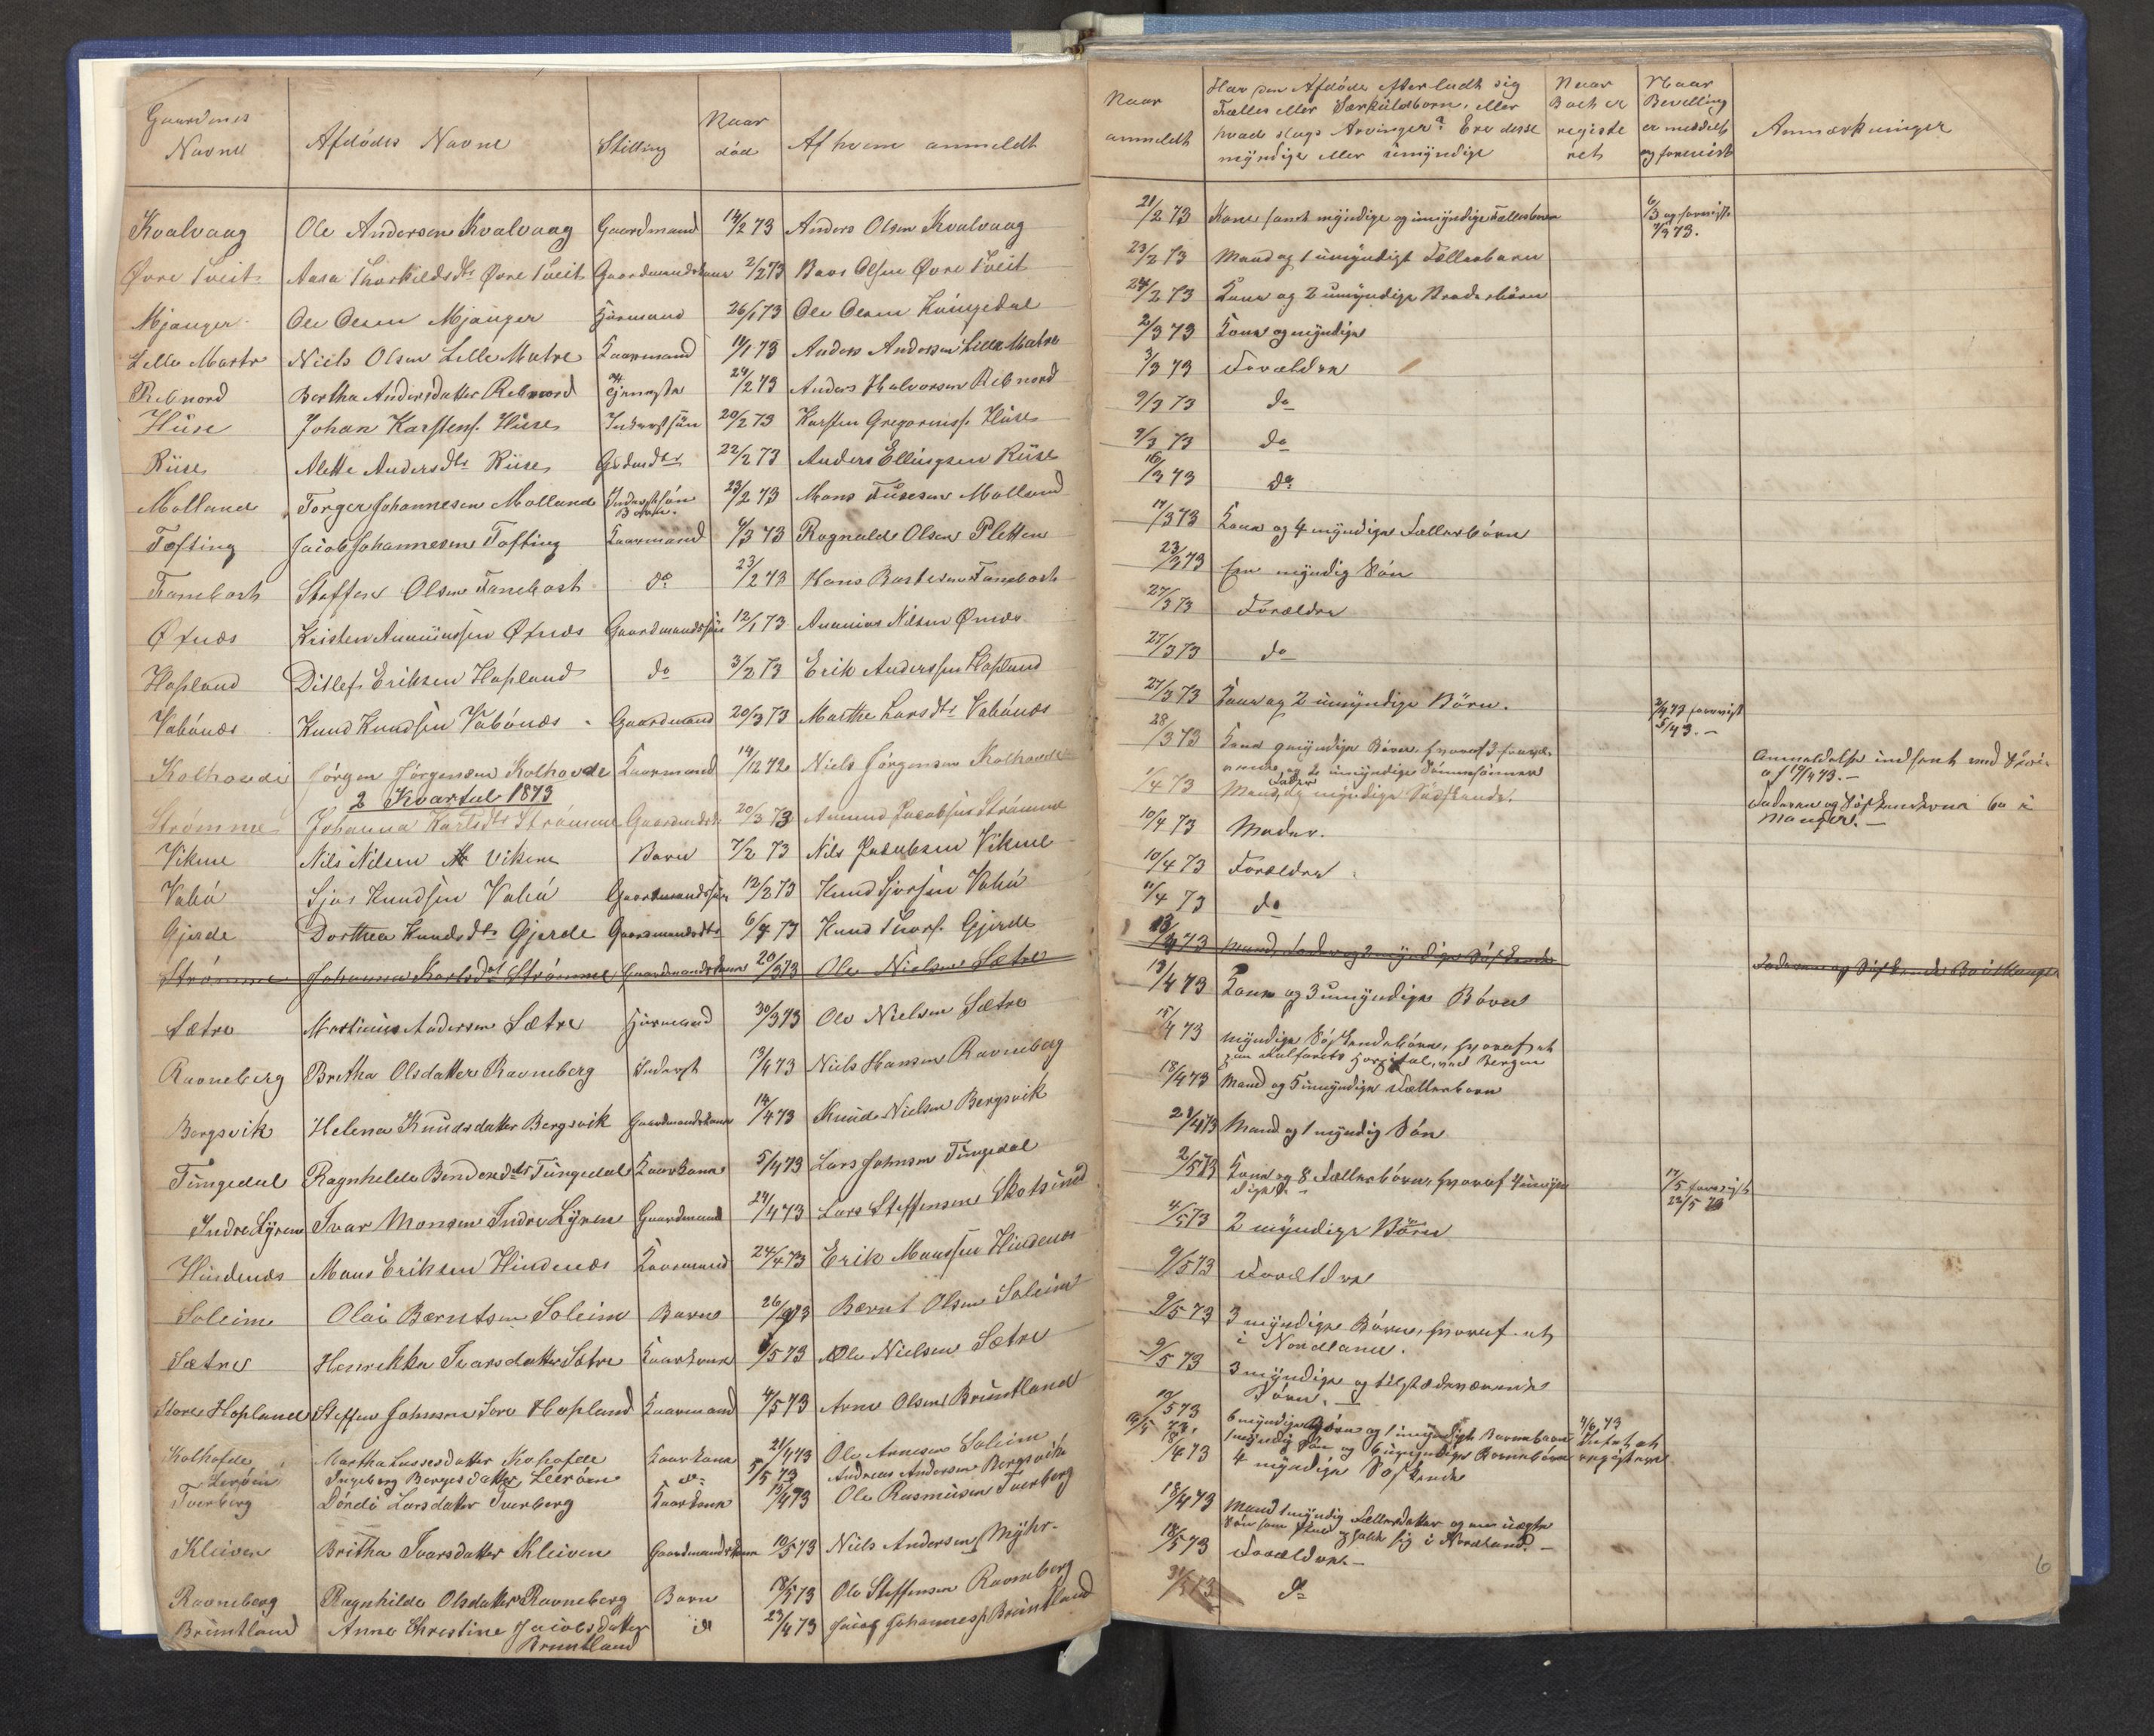 Gaardenes Navne | Afdødes Navne | Stilling | Naar død | Af hvem anmeldt
Kvalvaag | Ole Andersen Kvalvaag | Gaardmand | 14/2 73 | Anders Olsen Kvalvaag
Øvre Tveit | Aasa Thorkildsdtr Øvre Tveit | Gaardmandskone | 2/2 73 | Baar Olsen Øvre Tveit
Mjanger | Ole Olsen Mjanger | Huusmand | 26/1 73 | Ole Olsen
Lille Matre | Niels Olsen Lille Matre | Kaarmand | 11/1 73 | Anders Andersen Lille Matre
Rebnord | Bertha Andersdatter Rebnord | | 24/2 73 | Anders Halvorsen Rebnord
Huse | Johan Karstens. Huse | Inderstsøn | 20/2 73 | Karsten Gregoriuss. Huse
Riise | Alette Andersdtr Riise | Gdmdtr | 22/2 73 | Anders Ellingsen Riise
Molland | Torger Johannesen Molland | Inderstsøn Barn. | 23/2 73 | Mons Molland
Tofting | Jacob Johannesen Tofting | Kaarmand | 4/3 73 | Rognald Olsen Pletten
Tanebost | Steffen Olsen Tanebost | do | 23/2 73 | Hans Tanebost
Øxnæs | Kristen Ananiassen Øxnæs | Gaardmandssøn | 12/1 73 | Ananias Nilsen Øxnæs
Hopland | Ditlef Eriksen Hopland | do | 3/2 73 | Erik Anderssen Hopland
Vabønæs | Knud Knudsen Vabønæs | Gaardmand | 20/3 73 | Marthe Larsdtr Vabønæs
Kolhovde | Jørgen Jørgensen Kolhovde | Kaarmand | 14/12 72 | Niels Jørgensen Kolhovde
2 Kvartal 1873
Strømme | Johanna Karlsdtr Strømme | Gaardmdsk | 20/3 73 | Amund Jacobsen Strømme
Vikene | Nils Nilsen Vikene | Barn | 7/2 73 | Nils Jacobsen Vikene
Vabø | Sjur Knudsen Vabø | Gaardmandssøn | 12/2 73 | Knud Sjursen Vabø
Gjerde | Dorthea Knudsdtr Gjerde | Gaardmandsdtr | 6/4 73 | Knud Thors. Gjerde
Strømme | Johanna Karlsdtr Strømme | Gaardmandskone | 20/3 73 | Ole Nielsen Sætre
Sætre | Martinus Andersen Sætre | Huusmand | 30/3 73 | Ole Nielsen Sætre
Ravneberg | Bretha Olsdatter Ravneberg | Inderst | 13/4 73 | Niels Hansen Ravneberg
Bergsvik | Helena Knudsdatter Bergsvik | Gaardmandskone | 14/4 73 | Knud Nielsen Bergsvik
Tungedal | Ragnhilde Tungedal | Kaarkone | 5/4 73 | Lars Johnsen Tungedal
Indre Lyren | Ivar Monsen Indre Lyren | Gaardmand | 24/4 73 | Lars Steffensen
Hindenæs | Mons Eriksen Hindenæs | Kaarmand | 24/4 73 | Erik Monssen Hindenæs
Soleim | Olai Berntsen Soleim | Barn | 26/4 73 | Bernt Olsen Soleim
Sætre | Henrikka Ivarsdatter Sætre | Kaarkone | /5 73 | Ole Nielsen Sætre
Store Hopland | Steffen Johnsen Store Hopland | Kaarmand | 4/5 73 | Arne Olsen Bruntland
Kolhofde | Martha Lassesdatter Kohofde | Kaarkone | 21/4 73 | Ole Arnesen Soleim
Lerøen | Ingeborg Børgesdatter Leerøen | do | 5/5 73 | Andreas Andersen Bergsvik
Tverberg | Dorde Larsdatter Tverberg | Kaarkone | 15/4 73 | Ole Rasmussen Tverberg
Kleiven | Britha Ivarsdatter Kleiven | Gaardmandskone | 10/5 73 | Niels Andersen Myhr
Ravneberg | Ragnhilde Olsdatter Ravneberg | Barn | 18/5 73 | Ole Steffensen Ravneberg
Bruntland | Anne Christine Jacobsdatter | do | 23/4 73 | Jacob Johannes. Bruntland
Bruntland
Naar anmeldt | Har den Afdøde efterladt sig Fælles eller Særkuldsbørn, eller hvad slags Arvinger? Ere disse myndige eller umyndige | Naar Boet er registeret | Naar Bevilling er meddelt og forevist | Anmærkninger
21/2 73 | Kone samt myndige og umyndige Fællesbørn | 6/3 og forevist 7/3 73.
23/2 73 | Mand og 1 umyndigt Fællesbarn
24/2 73 | Kone og 2 umyndige Broderbørn
2/3 73 | Kone og myndige
3/3 73 | Forældre
9/3 73 | do
9/3 73 | do
16/3 73 | do
17/3 73 | Kone og 4 myndige Fællesbørn
23/3 73 | Een myndig Søn
27/3 73 | Forældre
27/3 73 | do
27/3 73 | Kone og 2 umyndige Børn. | 2/4 73 forevist 5/4 73.
28/3 73 | Kone myndige Børn, hvoraf 3
og 2 umyndige Sønnesønner | Anmeldelse indsent med
af 19/4 73.
1/4 73 | Mand, Fader og myndige Sødskende. | Faderen og Søskenderne bo i Manger.
10/4 73 | Moder.
10/4 73 | Forældre
11/4 73 | do
13/4 73 | Mand, Fader og myndige Søskende | Faderen og Søskende Bo i Manger
13/4 73 | Kone og 3 umyndige Børn
15/4 73 | myndige Søskendebørn, hvoraf et
paa Kalfarets Hospital, ved Bergen
18/4 73 | Mand og 5 umyndige Fællesbørn
21/4 73 | Mand og 1 myndig Søn
2/5 73 | Kone og 8 Fællesbørn, hvoraf 4 umyndige. | 17/5 forevist 22/5 73
4/5 73 | 2 myndige Børn
9/5 73 | Forældre
9/5 73 | 3 myndige Børn, hvoraf et
i Nordland.
9/5 73 | 3 myndige og tilstedeværende
Børn.
19/5 73 | 6 myndige Børn og 1 umyndigt Barnebarn | 4/6 73
16/5 73. | 1 myndig Søn og 6 umyndige Barnebørn | Intet at registrere
18/4 73 | 4 myndige Søskende
18/4 73 | Mand 1 myndig Fællesdatter og en uægte
Søn som skal opholde sig i Nordland.
18/5 73 | Forældre.
31/5 73 | do
6